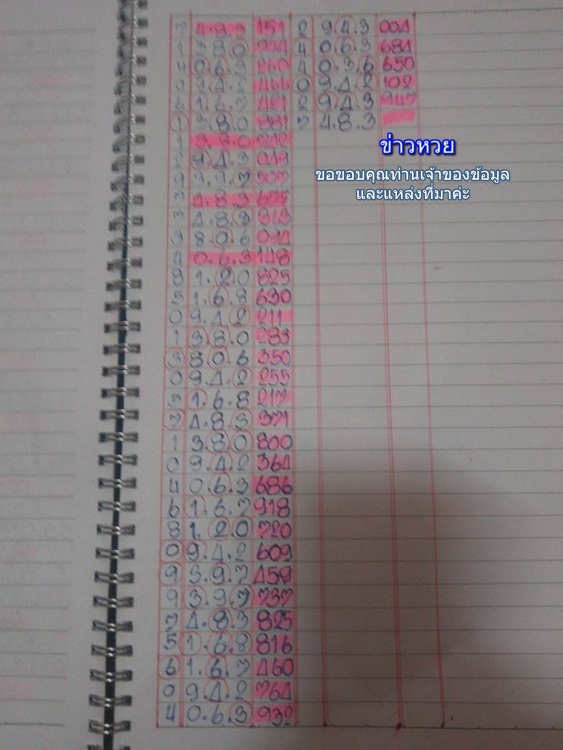 4.8.3 151
3.8.0
0.6.3 260
9.4.2 466
1.6.7
1 3.8.0 991
1 3.8.0
2 9.4.3 049
9 3.9.7 507
4.8.3
4.8.3
3 8.0.6
4 0.6.3 148
8 1.2.0 825
5 1.6.8 630
0 9.4.2 211
1 3.8.0 283
3 8.0.6 350
0 9.4.2 255
5 1.6.8 217
7 4.8.3 371
1 3.8.0 800
0 9.4.2 364
4 0.6.3 686
6 1.6.7 918
8 1.2.0 720
0 9.4.2 609
9 3.9.7 459
9 3.9.7 737
7 4.8.3 825
5 1.6.8 816
6 1.6.7 460
0 9.4.2 764
4 0.6.3 932
2 9.4.3 004
4 0.6.3 681
4 0.3.6 650
0 9.4.2 102
2 9.4.3 947
7 4.8.3
ข่าวหวย
ขอขอบคุณท่านเจ้าของข้อมูล
และแหล่งที่มาค่ะ